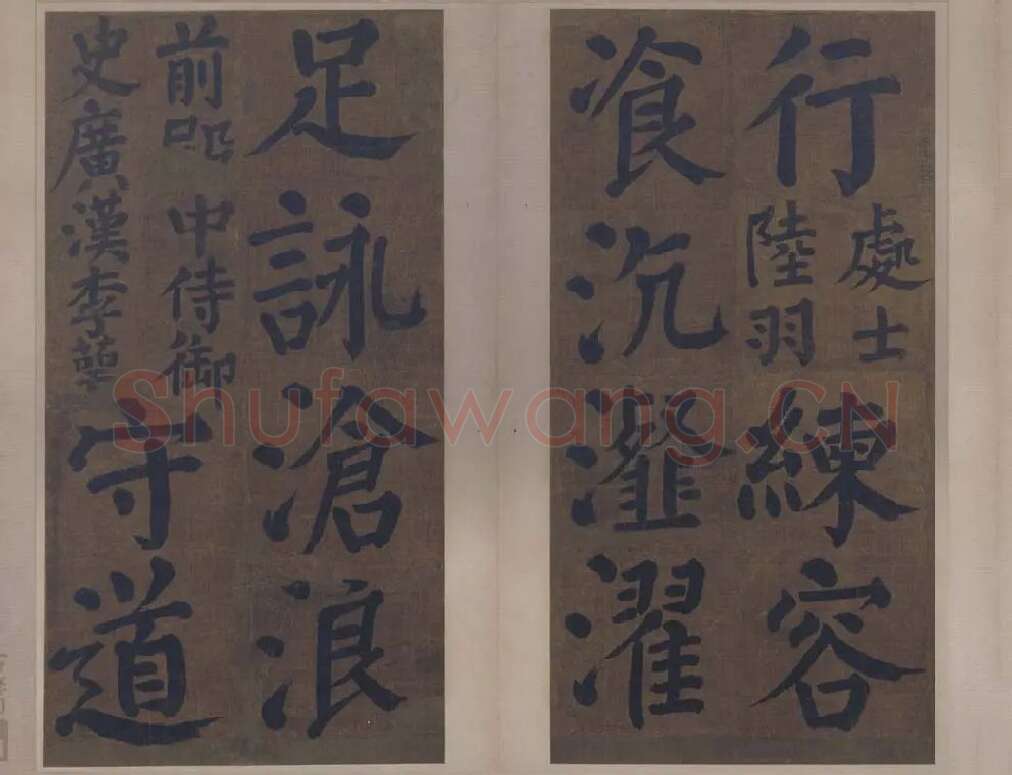 行
處士
陸羽
練容
飡沆瀣濯
足詠滄浪
前 中侍御
史廣漢李萼
守道
Shufawang.CN